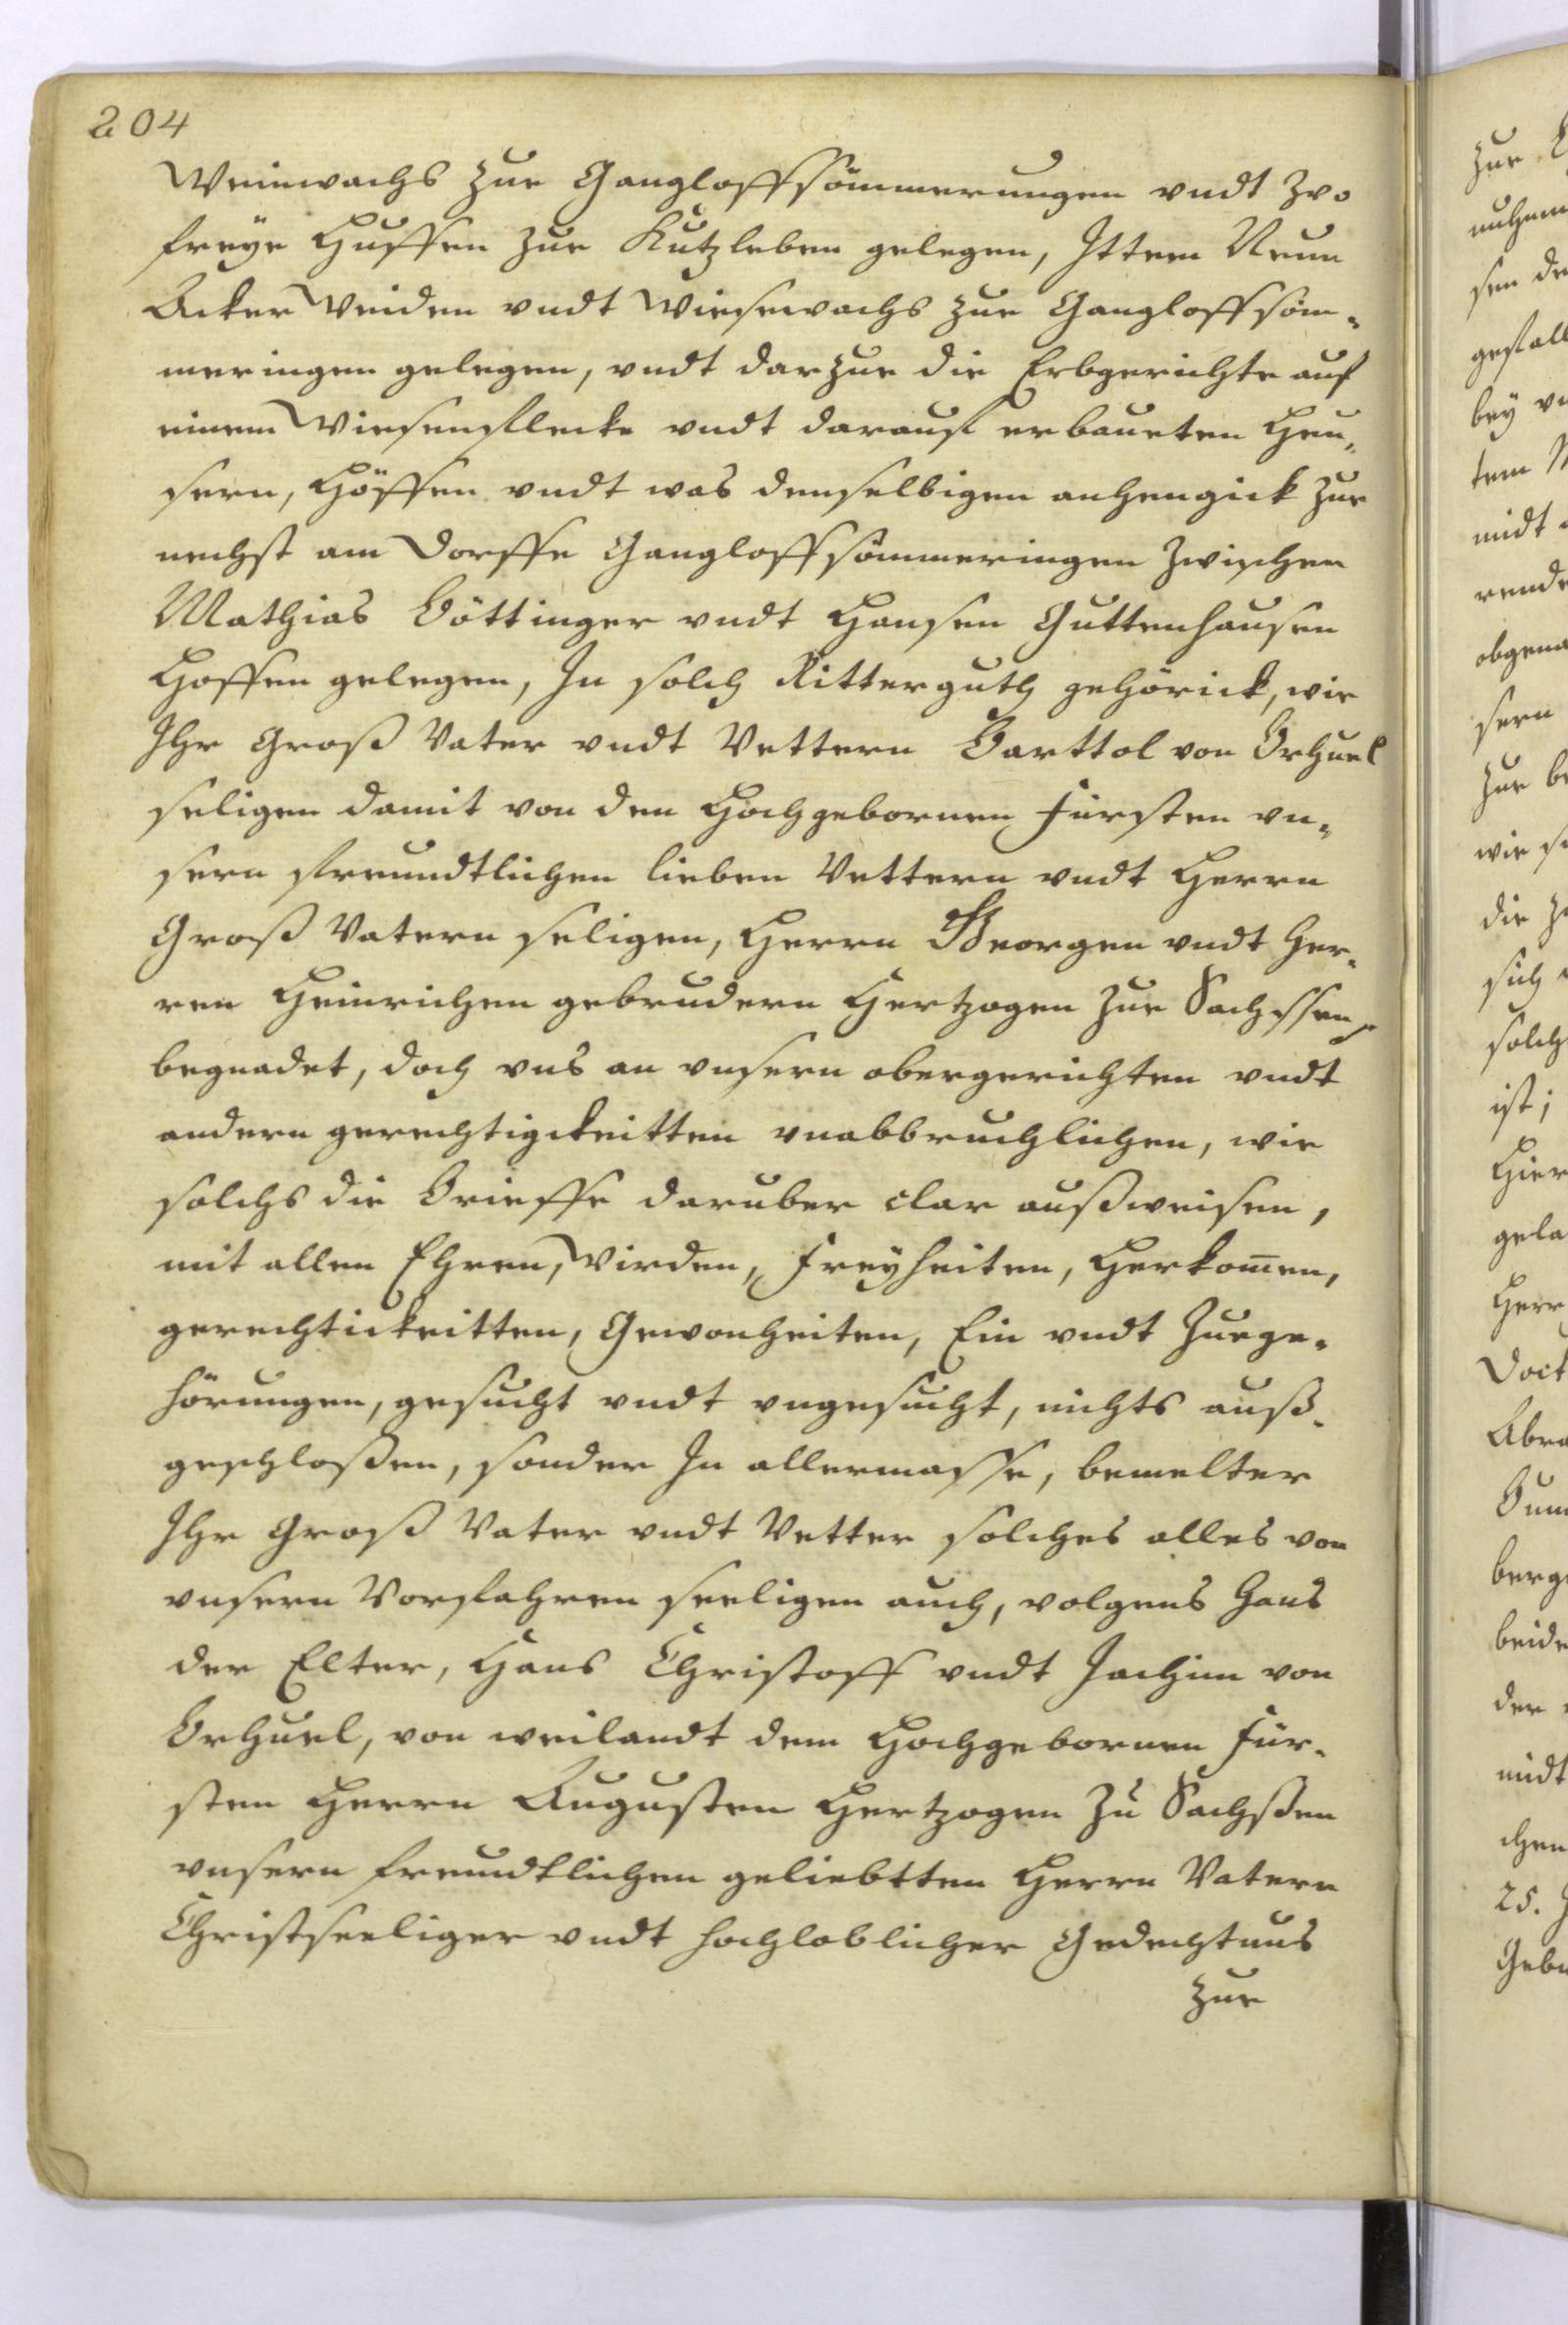 204
Weinwachs zue Gangloffsömmerungen undt zvo
freÿe Huffen zue Kutzleben gelegen, Ittem Neun
Acker Weiden vndt Wiesewachs zue Gangloffsöm-
meringen gelegen, vndt darzue die Erbgerichte auf
einem Wiesenflecke vndt darauf erbaueten Heu-
sern, Höffen vndt was denselbigen anhengick zue
nechst am Dorffe Gangloffsömmeringen zwischen
Mathias Böttinger vndt Hansen Guttenhausen
Hoffen gelegen, In solch Ritterguth gehörick, wie
Ihr Groß Vater vndt Vettern Barttol von Bchuel
seligen damit von den Hochgebornen Fürsten vn-
sern freundtlichen lieben Vettern vndt Herrn
Groß Vatern seligen, Herrn Georgen vndt Her-
ren Heinrichen gebrudern Hertzogen zue Sachssen
begnadet, doch vns an vnsern obergerichten vndt
andern gerechtigckeitten vnabbruchlichen, wie
solchs die Brieffe daruber clar außweisen,
mit allen Ehren, Wirden, Freyheiten, Herkom̅en,
gerechtickeitten, Gewonheiten, Ein vndt Zuege-
hörungen, gesucht vndt vngesucht, nichts auß-
geschloßen, sonder In allermasse, bemelter
Ihr Groß Vater vndt Vetter solches alles von
vnsern Vorfahren seeligen auch, volgens Hans
der Elter, Hans Christoff vndt Jachim von
Bchuel, von weilandt dem Hochgebornen Für-
sten Herrn Augusten Hertzogen zu Sachßen
vnsern freundtlichen geliebtten Herrn Vatern
Christseeliger vndt hochloblicher Gedechtnus
zue